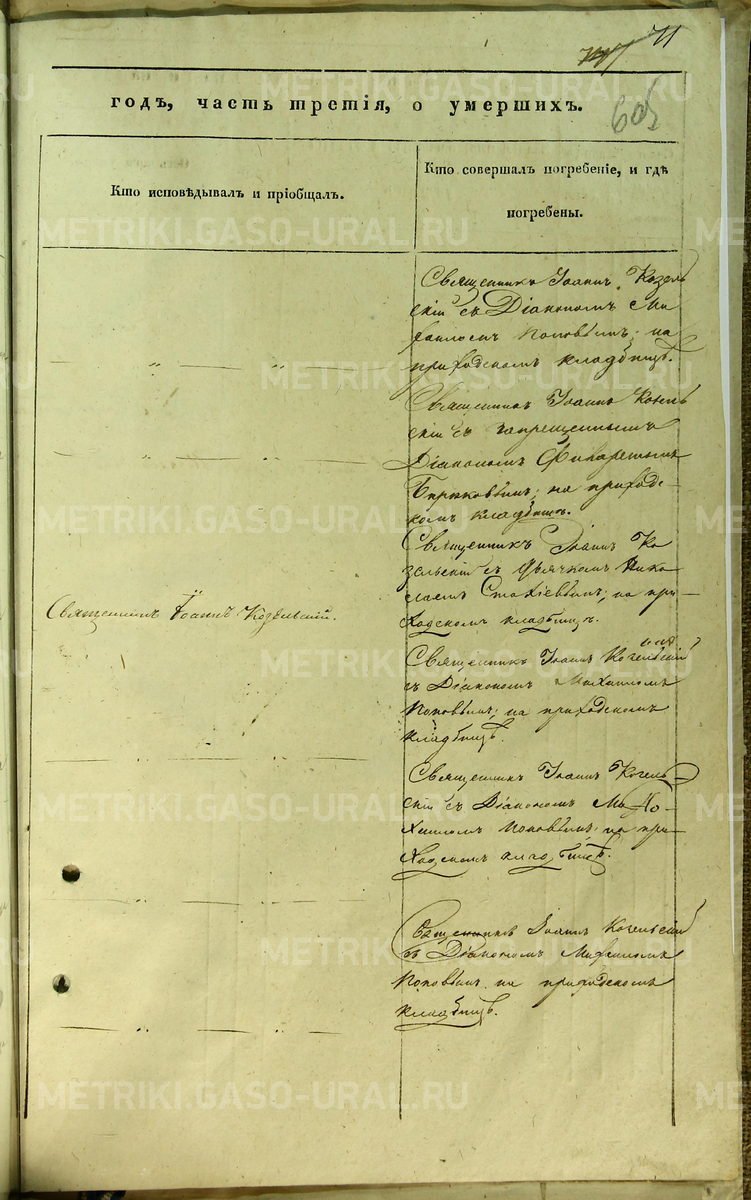 71
годъ, часть третія, о умершихъ.
605
Кто исповѣдывалъ и пріобщалъ.
Кто совершалъ погребеніе, и гдѣ
погребены.
Священникъ Іоаннъ Козель
скій съ Діакономъ Ми
хаиломъ Поповымъ; на
приходскомъ кладбищѣ.
Священникъ Іоаннъ Козель
скій съ запрещеннымъ
Діакономъ Филаретомъ
Бирюковымъ; на приход-
скомъ кладбищѣ.
Священникъ Іоаннъ Ко
зельскій съ Дьячкомъ Нико
лаемъ Стахіевымъ; на при
ходскомъ кладбищѣ.
Священникъ Іоаннъ Козельскій.
Священникъ Іоаннъ Козельскій
съ Діакономъ Михаиломъ
Поповымъ; на приходскомъ
кладбищѣ.
Священникъ Іоаннъ Козель
скій съ Діакономъ Ми
хаиломъ Поповымъ; на при
ходскомъ кладбищѣ.
Священникъ Іоаннъ Козельскій
съ Діакономъ Михаиломъ
Поповымъ на приходскомъ
кладбищѣ.
METRIKI.GASO-URAL.RU